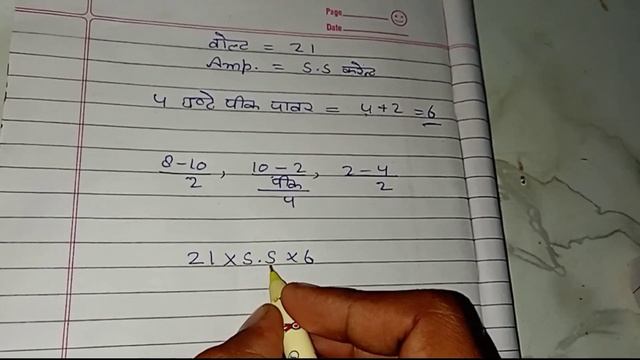 Page
Date
वोल्ट = 21
Amp. = 5.5 करेन्ट
4 घण्टे पीक पावर = 4+2 = 6
8-10, 10-2, 2-4
2 पीक 2
4
21 x 5.5 x 6